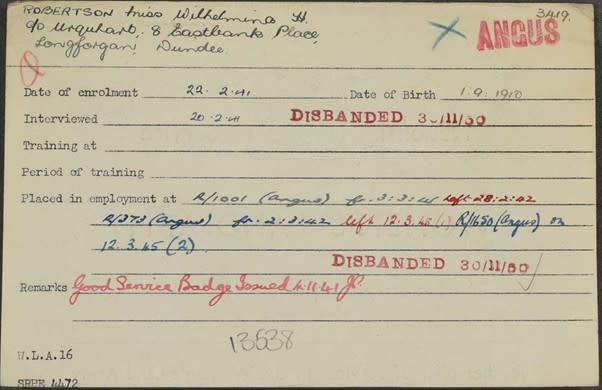 ROBERTSON Miss Wilhelmina H. 3419.
c/o Urquhart, 8 Eastbank Place, ANGUS
Longforgan, Dundee.
Date of enrolment 22.2.41 Date of Birth 1.9.1910
Interviewed 20.2.41 DISBANDED 30/11/50
Training at
Period of training
Placed in employment at R/1001 (Angus) fr. 3:3:41 left 28:2:42
R/373 (Angus) fr. 2:3:42 left 12.3.45 (1) R/1650 (Angus) on
12.3.45 (2).
DISBANDED 30/11/50
Remarks Good Service Badge Issued 4.11.41
13538
W.L.A.16
SRPE 4472